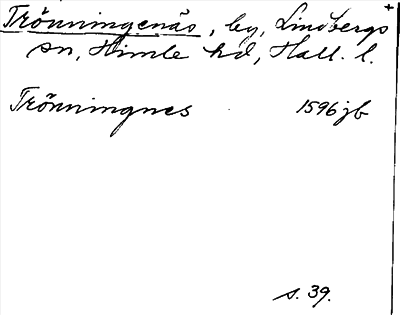 Trönningenäs, by, Lindbergs
sn, Himle hd, Hall. l.
Trönningnes 1596 jb
s. 39.